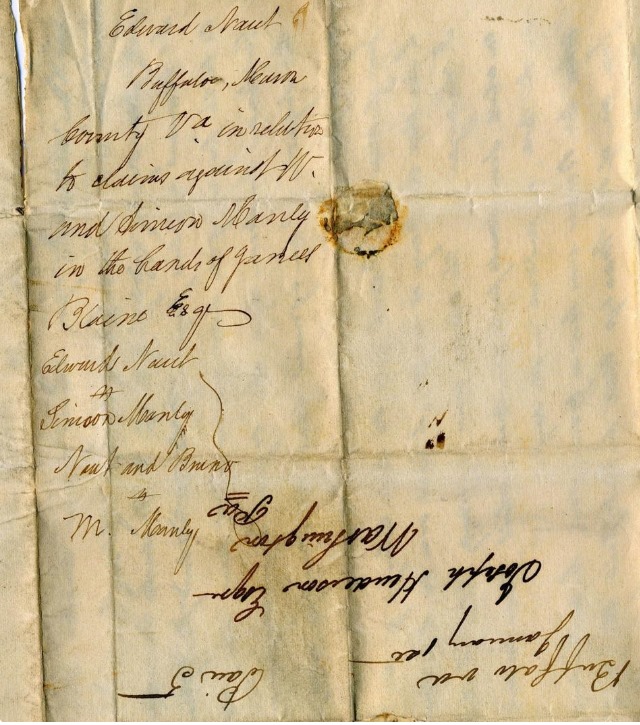 Edward Naut
Buffaloe, Mason
County Va in relation
to claims against W.
and Simeon Manly
in the hands of James
Blaine Esqr
Edward Naut
Simeon Manly
Naut and
M. Manly
Buffalo va
January 1
Joseph Henderson Esqr
Washington
Pa
Paid 5